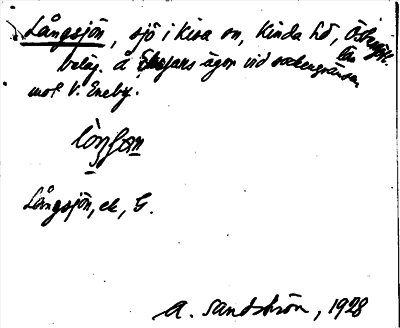 Långsjön, sjö i Kisa sn, Kinda hd,
beläg. å ägor vid sockengränsen
mot V. Eneby.
Långsjön, ek, G.
A. Sandström, 1928